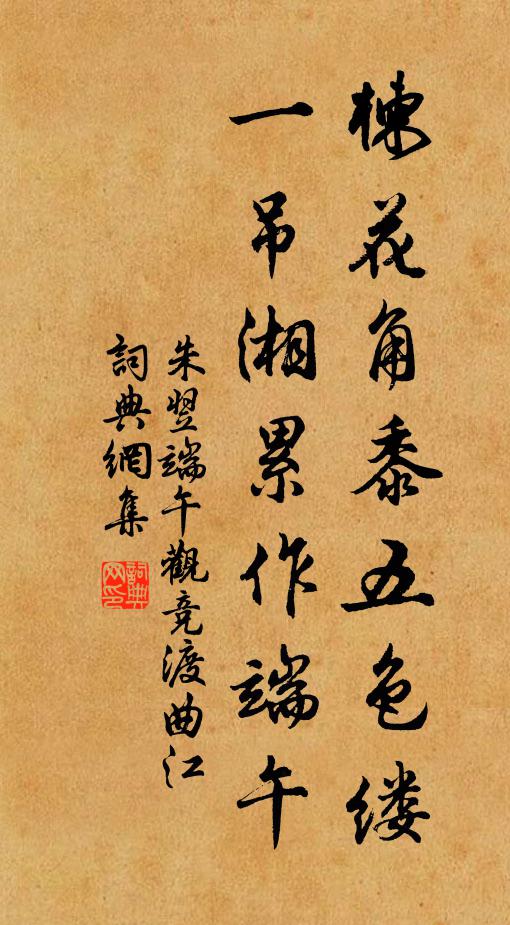 楝花角黍五色缕
一吊湘累作端午
朱翌端午觀竞渡曲江
詞典網集
詞典网印